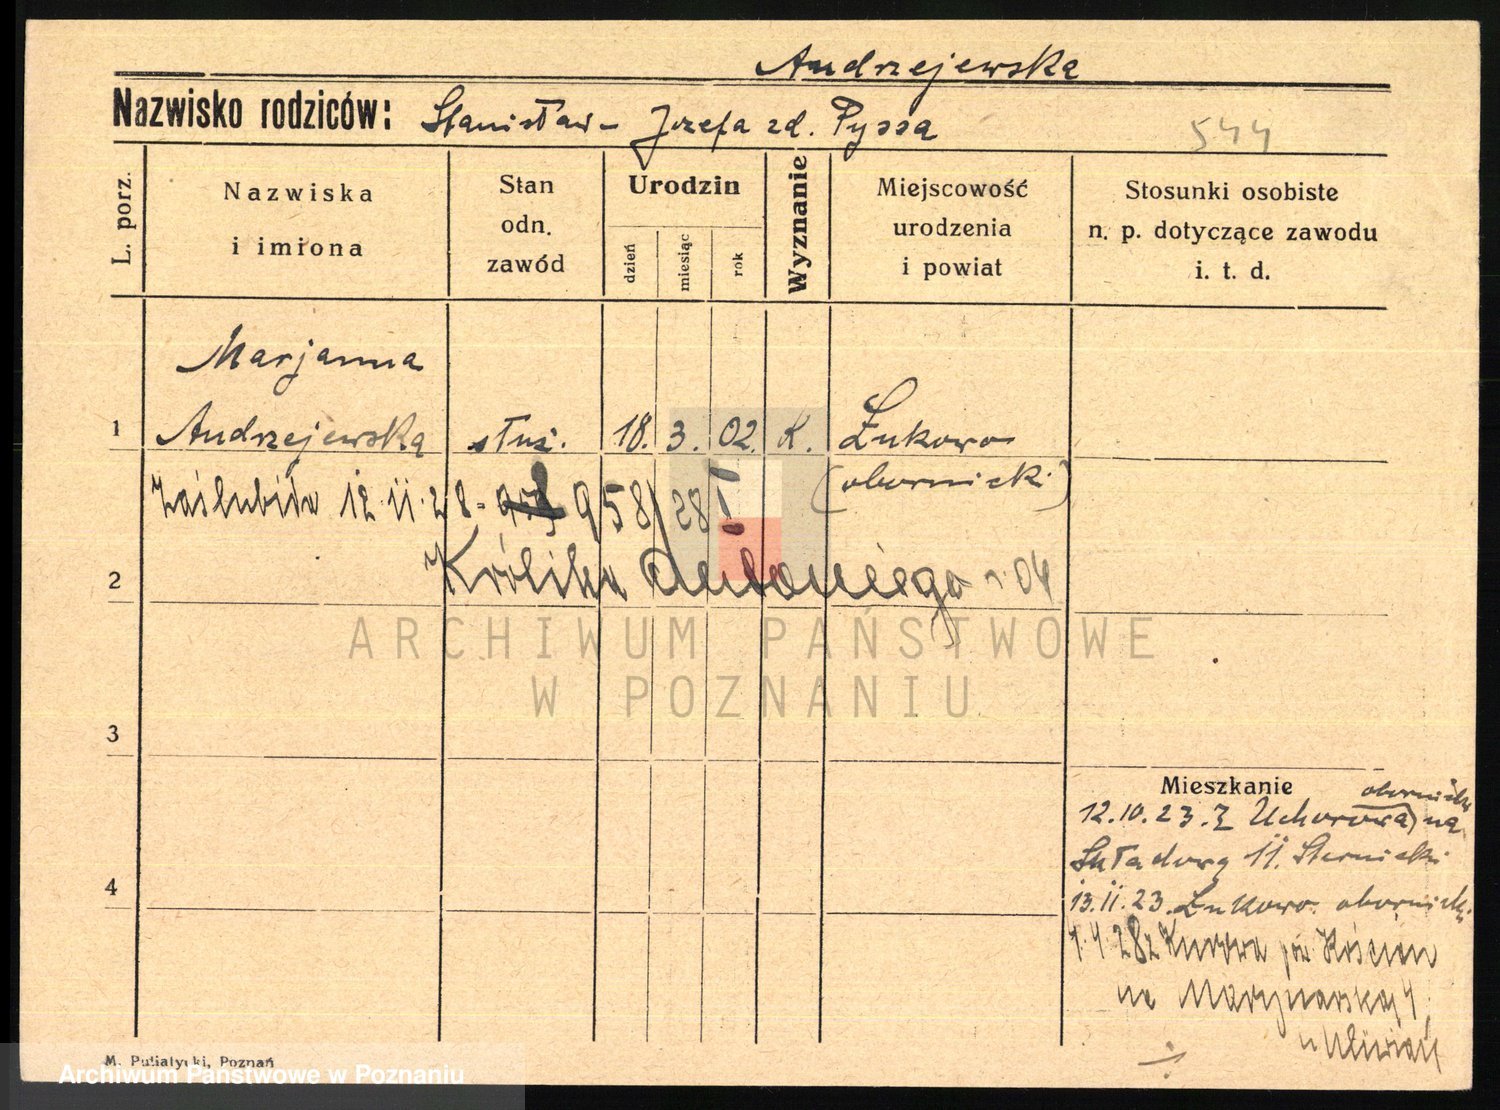 Andrzejewska
Nazwisko rodziców: Stanisław - Józefa zd. Pyssa
544
L. porz.
Nazwiska
i imiona
Stan
odn.
zawód
Urodzin
dzień
miesiąc
rok
Wyznanie
Miejscowość
urodzenia
i powiat
Stosunki osobiste
n. p. dotyczące zawodu
i. t. d.
Marjanna
1 Andrzejewska służ. 18. 3. 02. K. Łukowo
(obornicki)
Zaślubiła 12.11.28 - 958/28
2 Królika Antoniego 04
ARCHIWUM PAŃSTWOWE
W POZNANIU
3
Mieszkanie
obornicki
12.10.23. Z Uchorowa na
Składową 11. Sternicki
4
13.11.23. Łukowo obornicki
1.4.28 z Kurowa pow. Kościan
na Marynarską 4
u
M. Putiatycki, Poznań
Archiwum Państwowe w Poznaniu